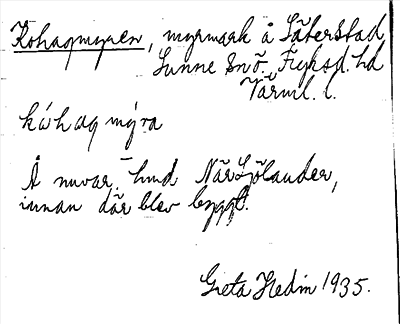 Kohagmyren, myrmark å Säterstad,
Sunne sn ö. Fryksd. hd
Värml. l.
kóhag mýra
Å nuvar. hmd När Sjölander,
innan där blev byggt.
Greta Hedin 1935.